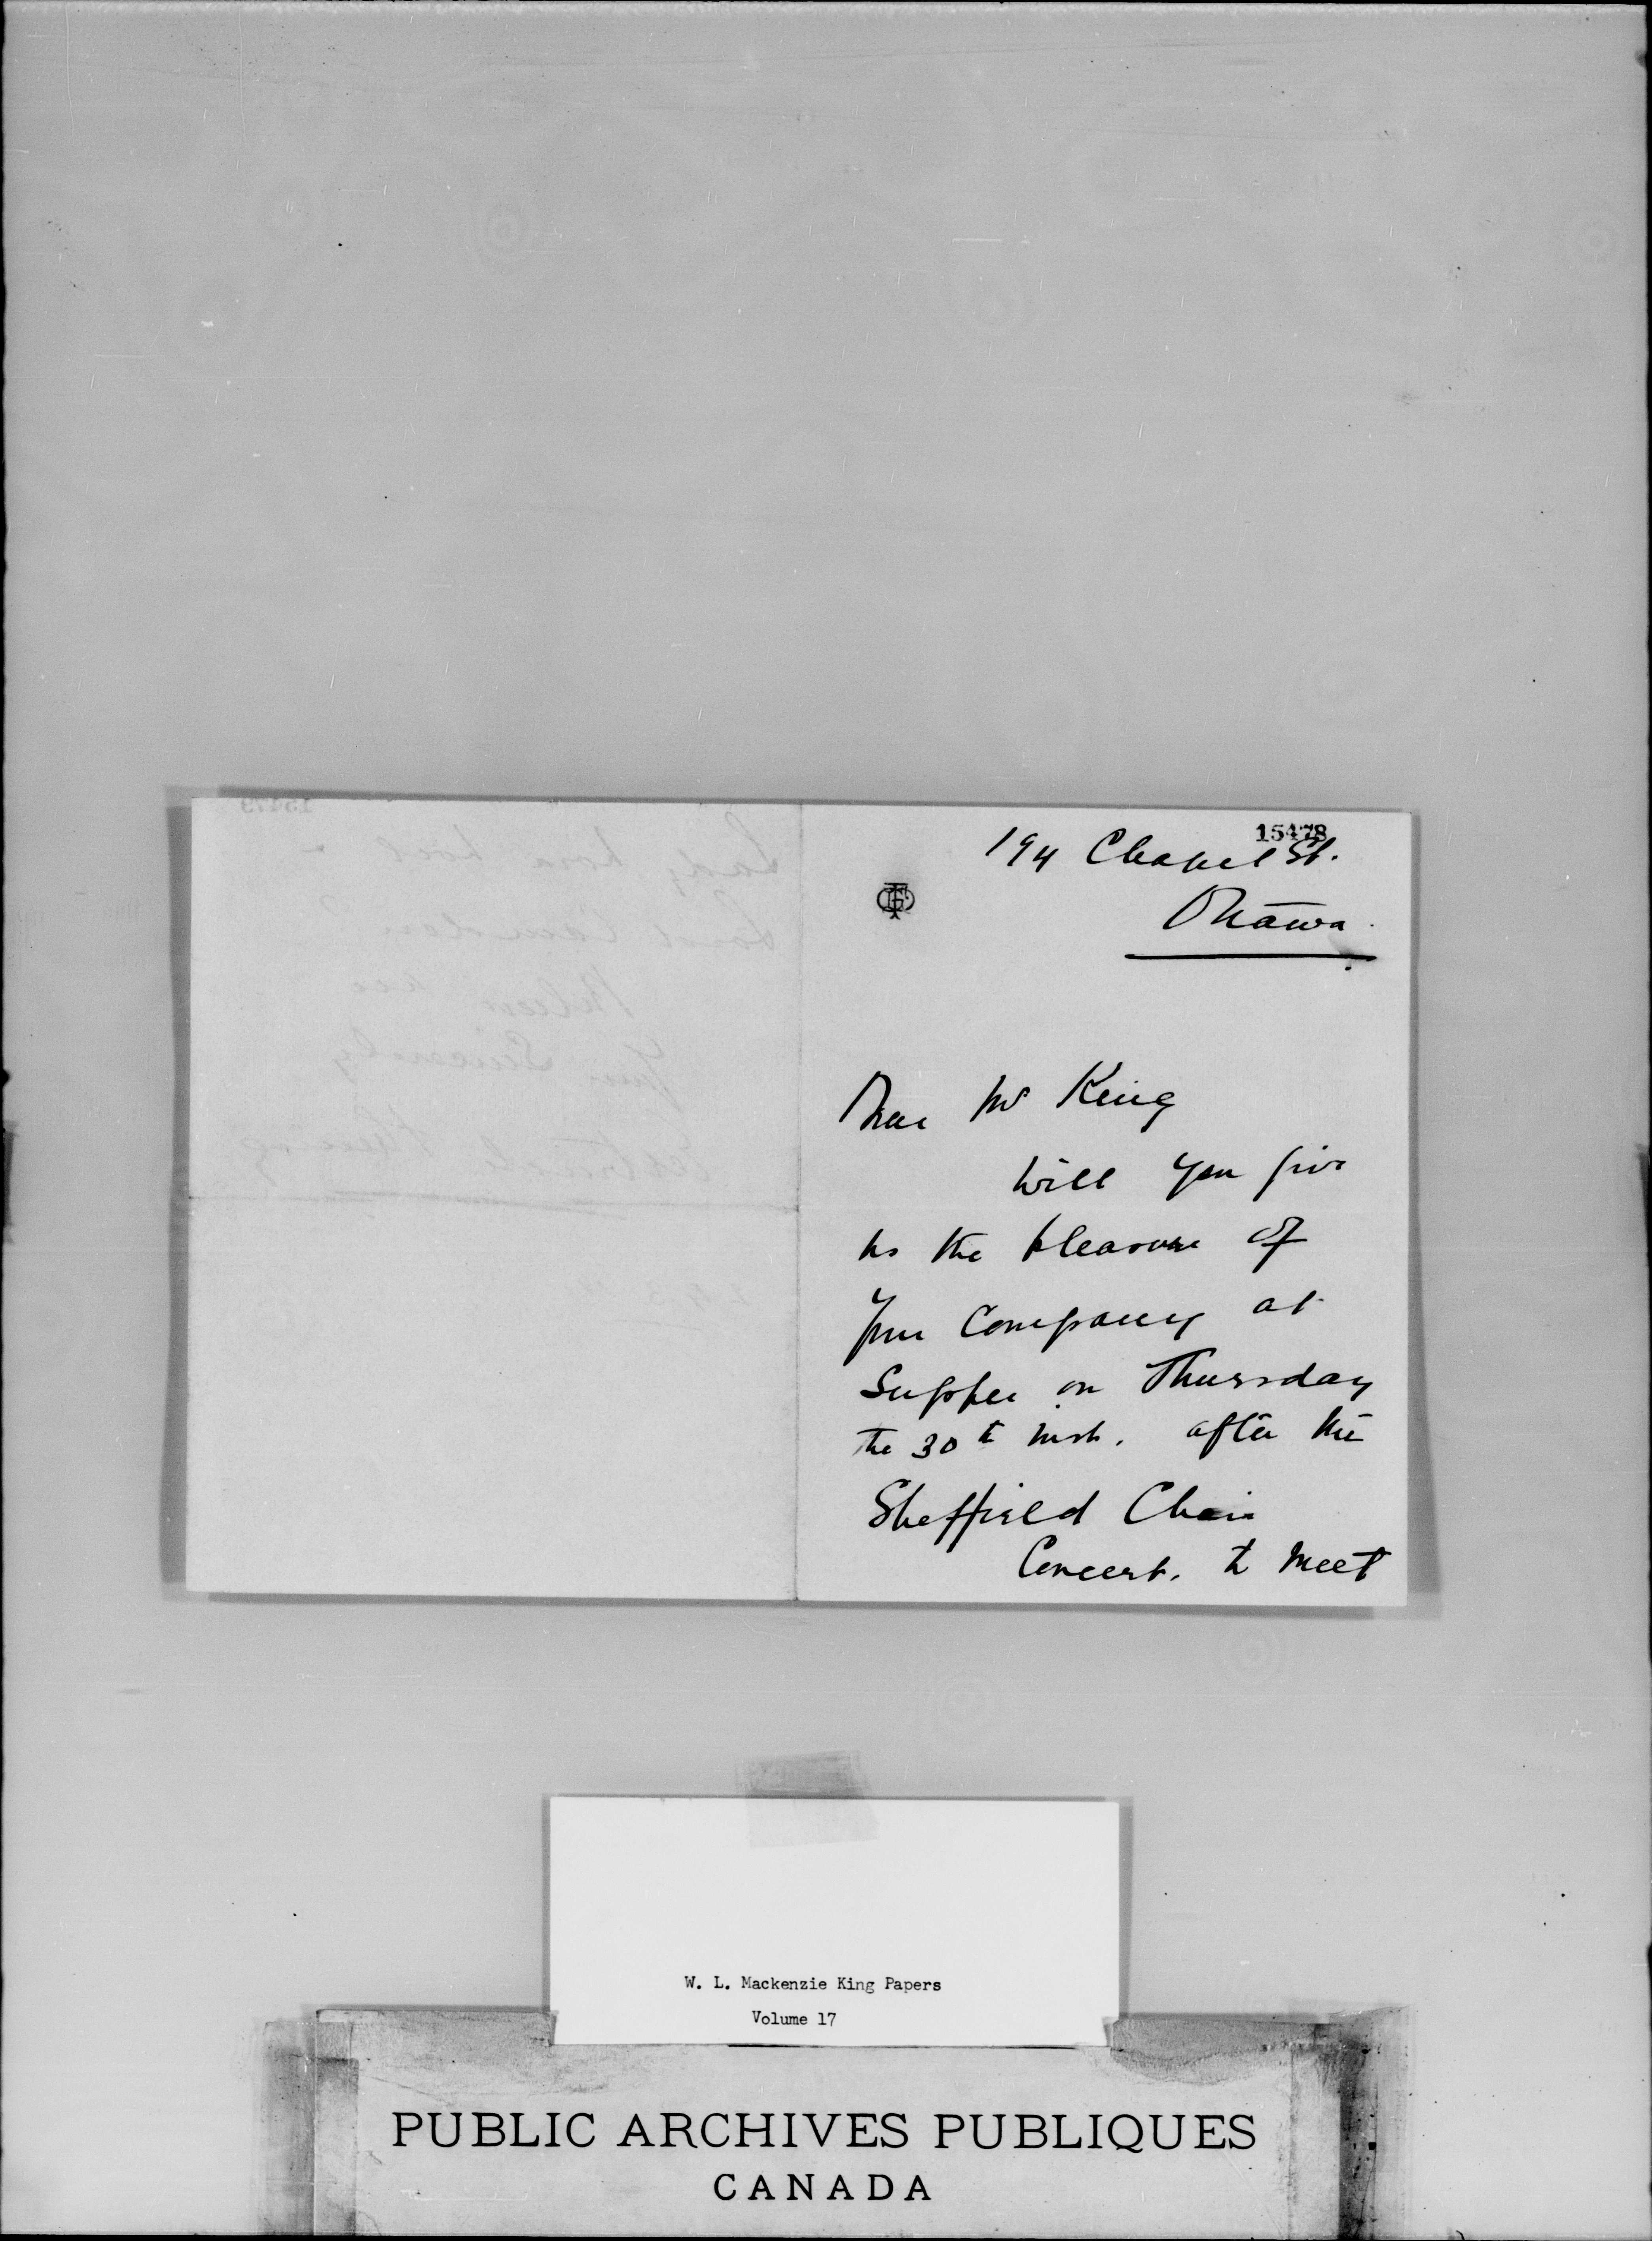 15478
194 Chapel St.
Ottawa
Dear Mr King
Will you give
us the pleasure of
your Company at
Supper on Thursday
the 30th inst. after the
Sheffield Choir
Concert. to meet
W. L. Mackenzie King Papers
Volume 17
PUBLIC ARCHIVES PUBLIQUES
CANADA